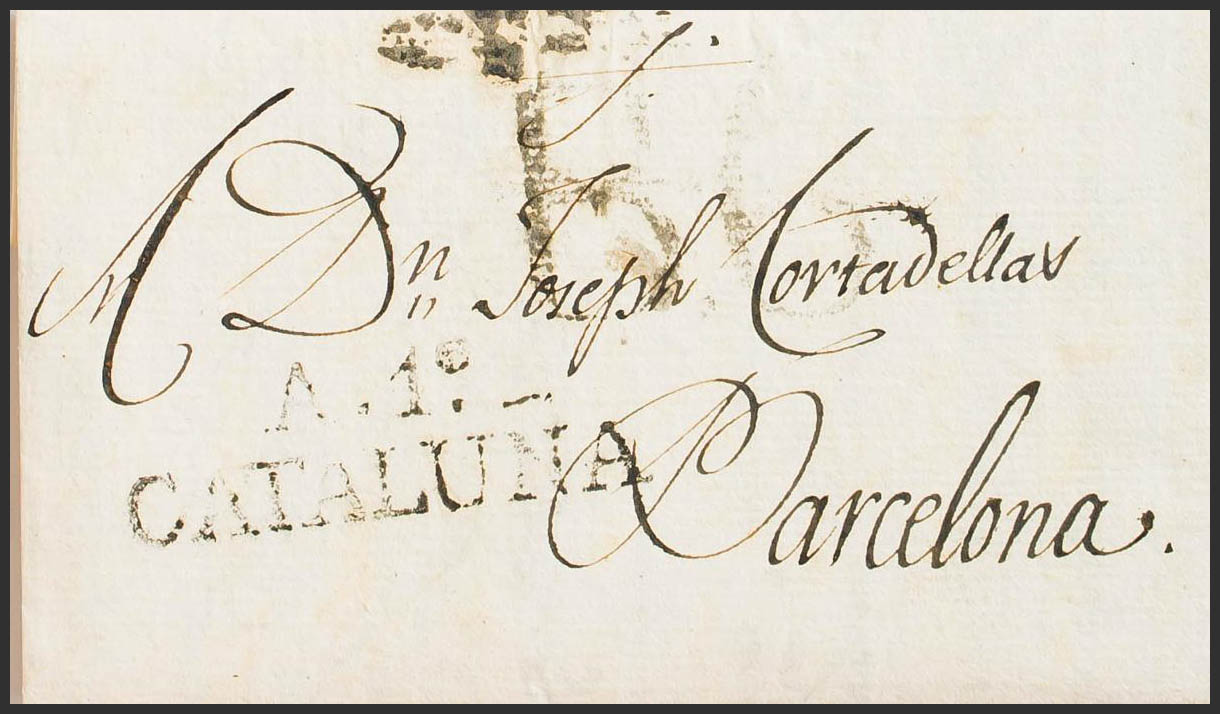 A Dn Joseph Cortadellas
A.1º
CATALUÑA
Barcelona.